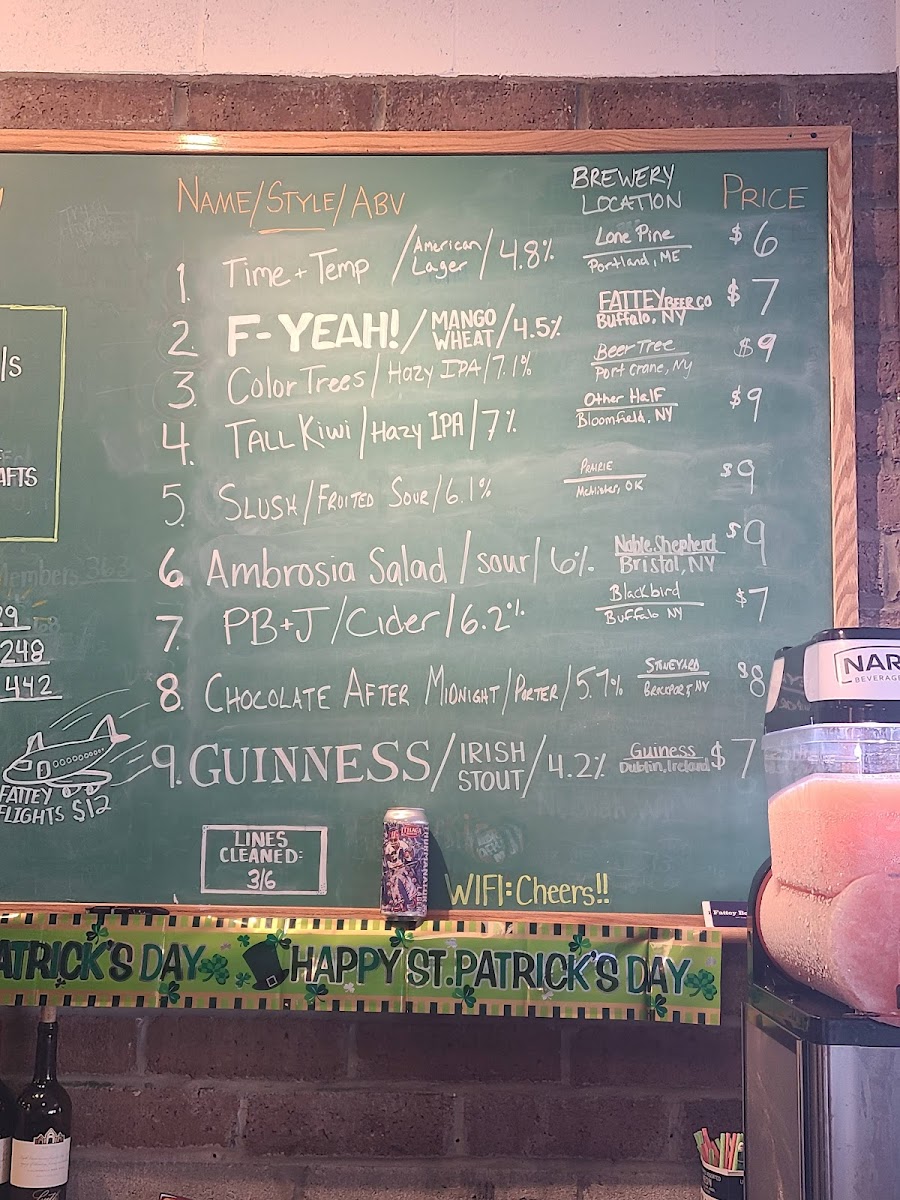 NAME/STYLE/ABV
BREWERY
LOCATION
PRICE
1. Time + Temp / American Lager / 4.8%
Lone Pine
Portland, ME
$6
2. F-YEAH! / MANGO WHEAT / 4.5%
FATTEY BEER CO
Buffalo, NY
$7
3. Color Trees / Hazy IPA / 7.1%
Beer Tree
Port Crane, Ny
$9
4. TALL Kiwi / Hazy IPA / 7%
Other Half
Bloomfield, NY
$9
5. SLUSH / FRUITED SOUR / 6.1%
PRAIRIE
McAlister, OK
$9
6. Ambrosia Salad / sour / 6%
Noble Shepherd
Bristol, NY
$9
7. PB+J / Cider / 6.2%
Blackbird
Buffalo NY
$7
8. CHOCOLATE AFTER MIDNIGHT / PORTER / 5.7%
STONEYARD
BROCKPORT NY
$8
9. GUINNESS / IRISH STOUT / 4.2%
Guinness
Dublin, Ireland
$7
/s
AFTS
Members 363
29
248
442
FATTEY
FLIGHTS $12
LINES
CLEANED:
3/6
ITHACA
WIFI: Cheers!!
Fattey Be
NAR
BEVERAGE
ATRICK'S DAY HAPPY ST. PATRICK'S DAY